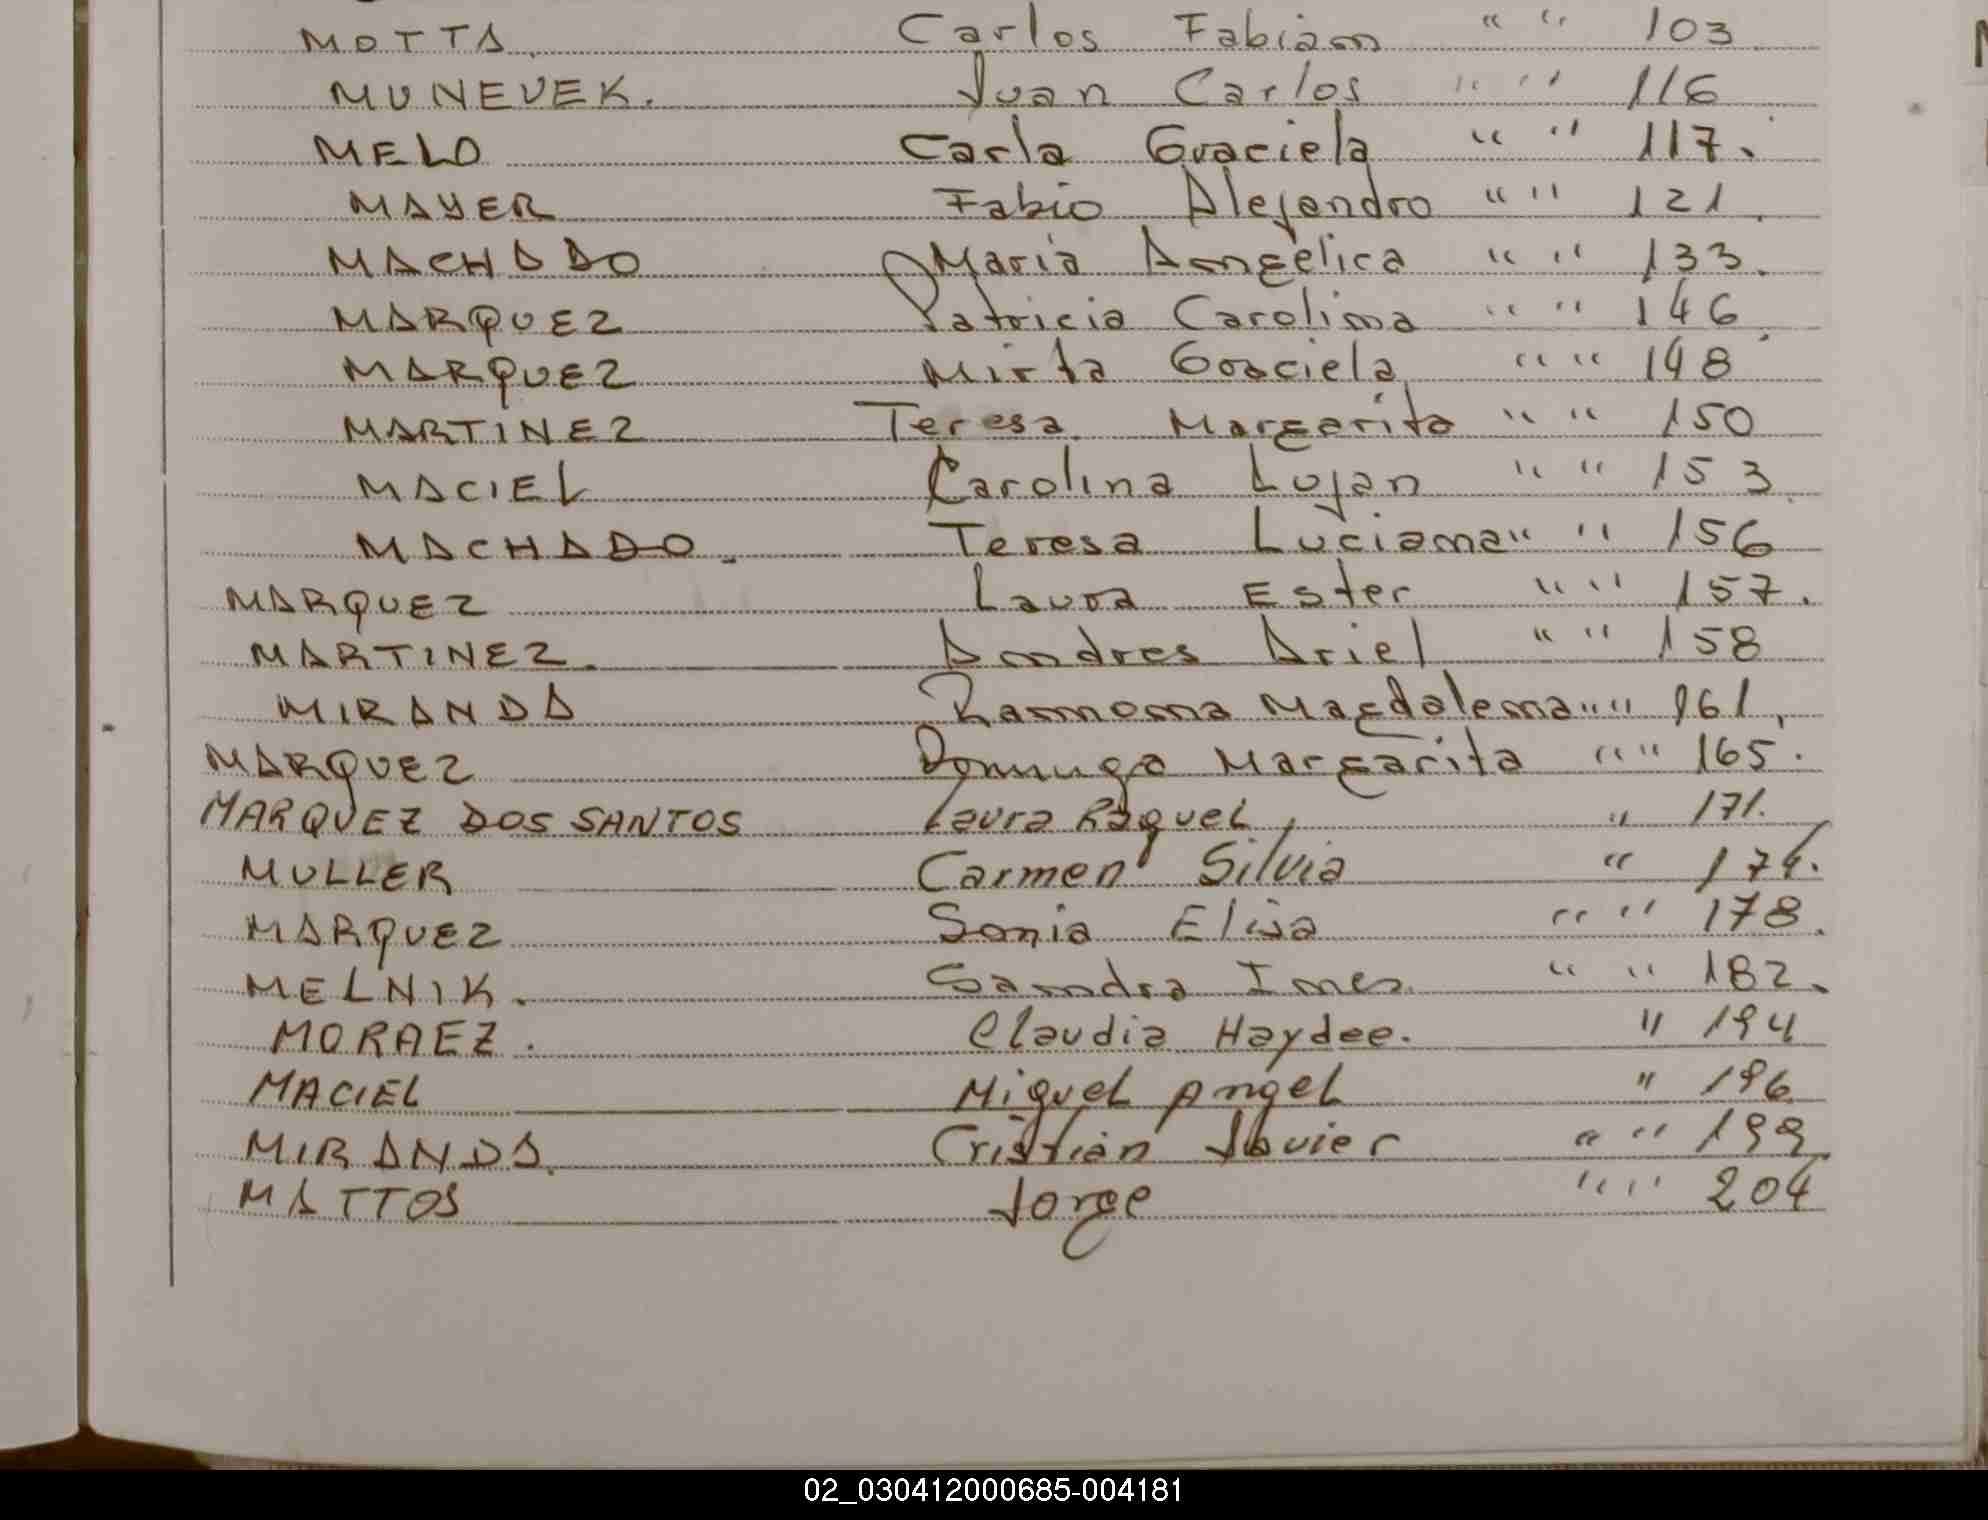 MOTTA. Carlos Fabian " " 103
MUNEVEK. Juan Carlos " " 116
MELO Carla Graciela " " 117.
MAYER Fabio Alejandro " " 121.
MACHADO Maria Angelica " " 133.
MARQUEZ Patricia Carolina " " 146.
MARQUEZ Mirta Graciela " " 148
MARTINEZ Teresa Margarita " " 150
MACIEL Carolina Lujan " " 153.
MACHADO. Teresa Luciana " " 156
MARQUEZ Laura Ester " " 157.
MARTINEZ. Andres Ariel " " 158
MIRANDA Ramona Magdalena " " 161.
MARQUEZ Dominga Margarita " " 165.
MARQUEZ DOS SANTOS Laura Raquel " 171.
MULLER Carmen Silvia " 174.
MARQUEZ Sonia Elisa " " 178.
MELNIK. Sandra Ines. " " 182.
MORAEZ. Claudia Haydee. " 194
MACIEL Miguel Angel " 196
MIRANDA. Cristian Javier " " 199
MATTOS Jorge " " 204
02_030412000685-004181